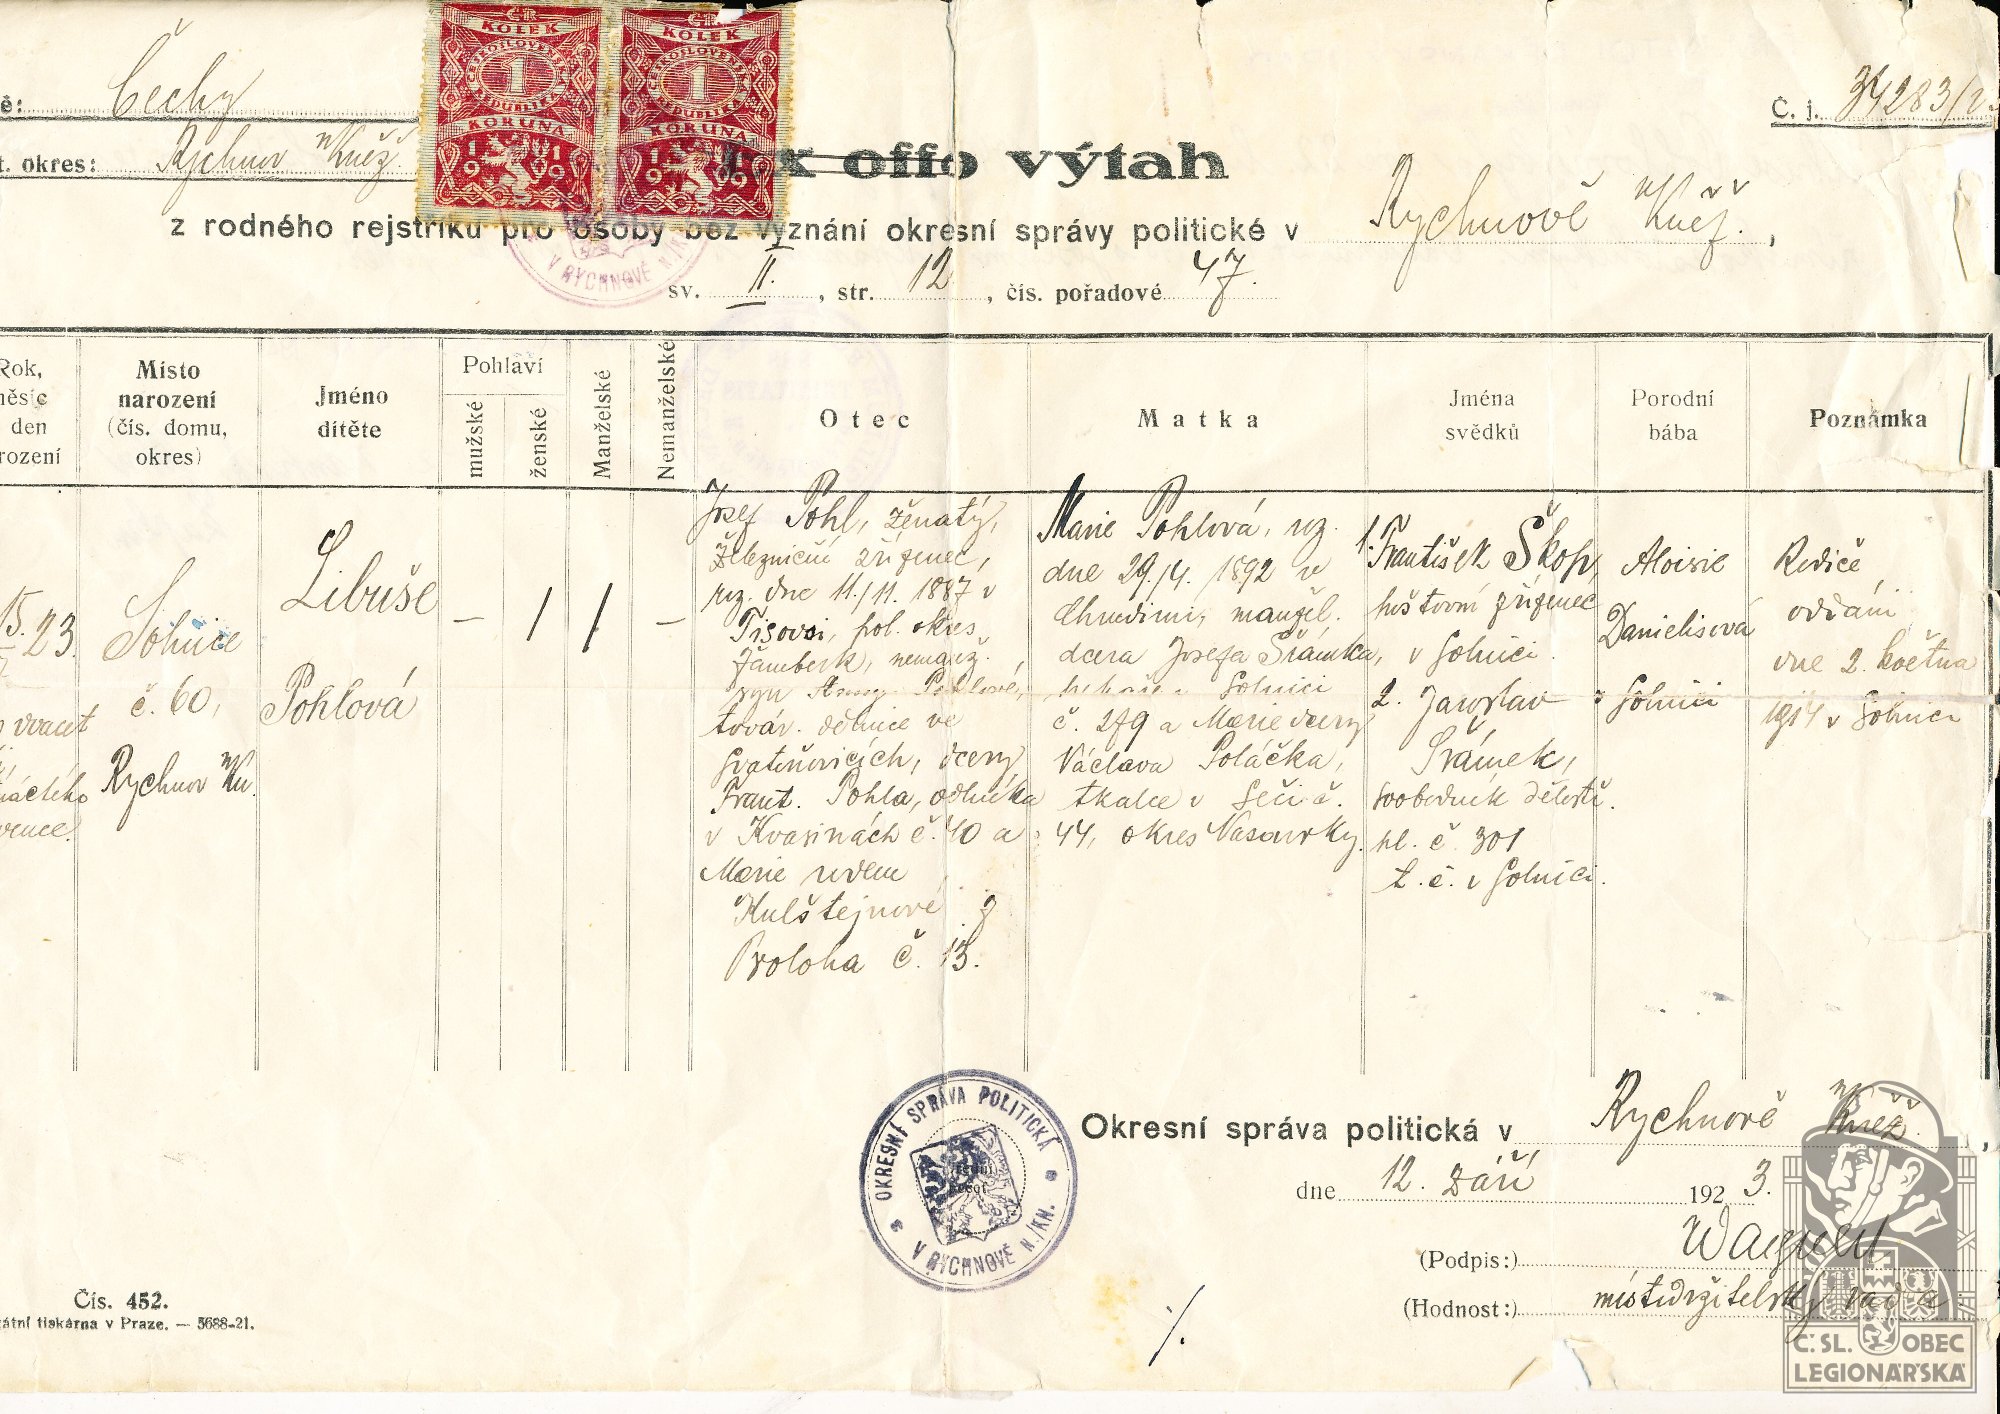 ě: Čechy
t. okres: Rychnov n/Kněž.
ČR
KOLEK
ČESKOSLOVENSKÁ REPUBLIKA
1
KORUNA
1919
ČR
KOLEK
ČESKOSLOVENSKÁ REPUBLIKA
1
KORUNA
1919
Č. j. 34283/
Ex offo výtah
z rodného rejstříku pro osoby bez vyznání okresní správy politické v Rychnově n/Kněž.,
V RYCHNOVĚ N/
sv. II., str. 12, čís. pořadové 47.
Rok,
měsíc
den
rození
Místo
narození
(čís. domu,
okres)
Jméno
dítěte
Pohlaví
mužské
ženské
Manželské
Nemanželské
Otec
Matka
Jména
svědků
Porodní
bába
Poznámka
15.
23.
dvacet
náctého
Solnice
č. 60,
Rychnov n/Kn.
Libuše
Pohlová
—
/
/
—
Josef Pohl, ženatý,
železniční zřízenec,
nar. dne 11./11. 1887 v
Tisovsi, pol. okres
Žamberk, nemanž.
syn Anny Pohlové,
továr. dělnice ve
Svatoňovicích, dcery
Frant. Pohla, odlníka
v Kvasinách č. 40 a
Marie rodem
Kulštejnové z
Proloha č. 13.
Marie Pohlová, nar.
dne 29./4. 1892 v
Chrudimi, manžel.
dcera Josefa Šrámka,
v Solnici
č. 279 a Marie dcery
Václava Poláčka,
tkalce v Seči č.
44, okres Nasavrky.
1. František Škop,
poštovní zřízenec
v Solnici.
2. Jaroslav
Šrámek,
svobodník dělostř.
pl. č. 301
t. č. v Solnici.
Aloisie
Danielisová
v Solnici
Rodiče
oddáni
dne 2. května
1914 v Solnici
OKRESNÍ SPRÁVA POLITICKÁ
V RYCHNOVĚ N./KN.
Okresní správa politická v Rychnově n/Kněž.,
dne 12. září 1923.
(Podpis:) Wagner
(Hodnost:) místodržitelský rada
Čís. 452.
átní tiskárna v Praze. — 5688-21.
Č.SL. OBEC
LEGIONÁŘSKÁ